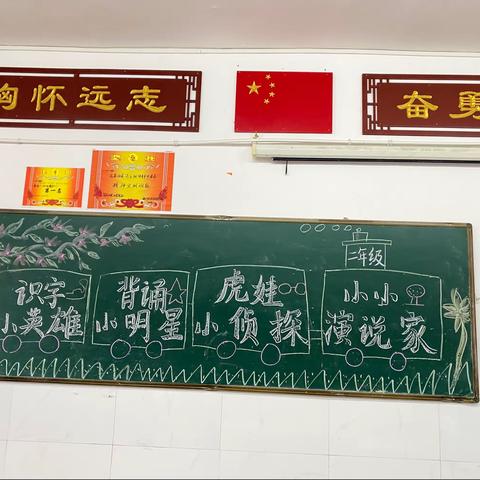 胸怀远志
奋勇
第一名
二年级
识字
小英雄
背诵
小明星
虎娃
小侦探
小小
演说家